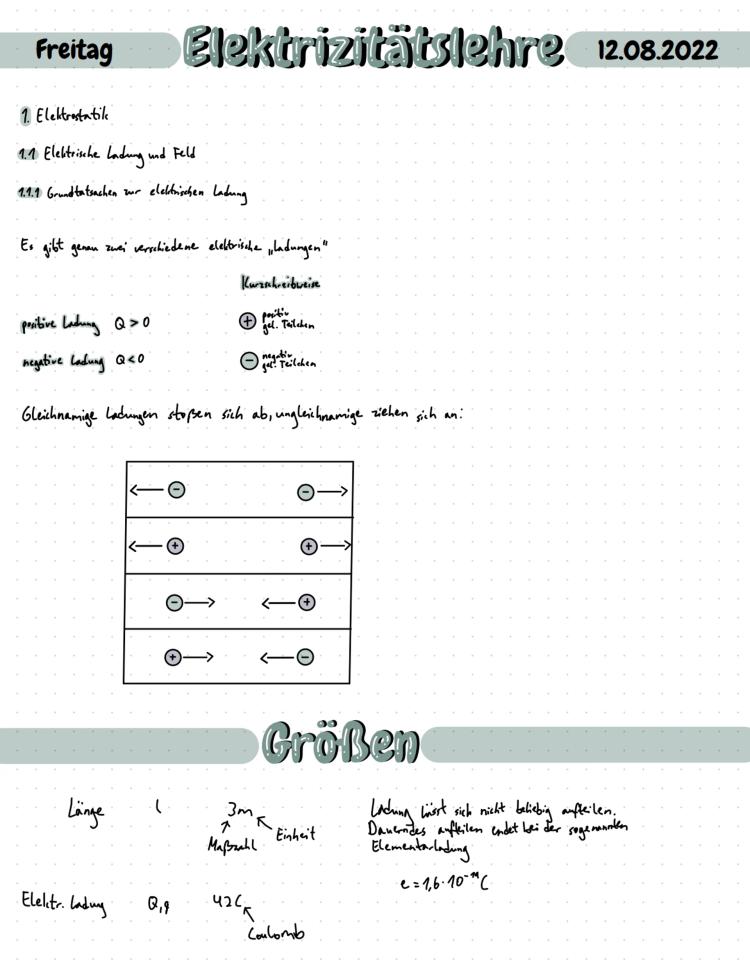 Freitag Elektrizitätslehre 12.08.2022
1. Elektrostatik
1.1 Elektrische Ladung und Feld
1.1.1 Grundtatsachen zur elektrischen Ladung
Es gibt genau zwei verschiedene elektrische „Ladungen"
Kurzschreibweise
positive Ladung Q > 0
+ positiv
gel. Teilchen
negative Ladung Q < 0
− negativ
gel. Teilchen
Gleichnamige Ladungen stoßen sich ab, ungleichnamige ziehen sich an:
− −
+ +
− +
+ −
Größen
Länge l 3m
Maßzahl Einheit
Elektr. Ladung Q, q 42C
Coulomb
Ladung lässt sich nicht beliebig aufteilen.
Dauerndes aufteilen endet bei der sogenannten
Elementarladung
e = 1,6 · 10⁻¹⁹ C